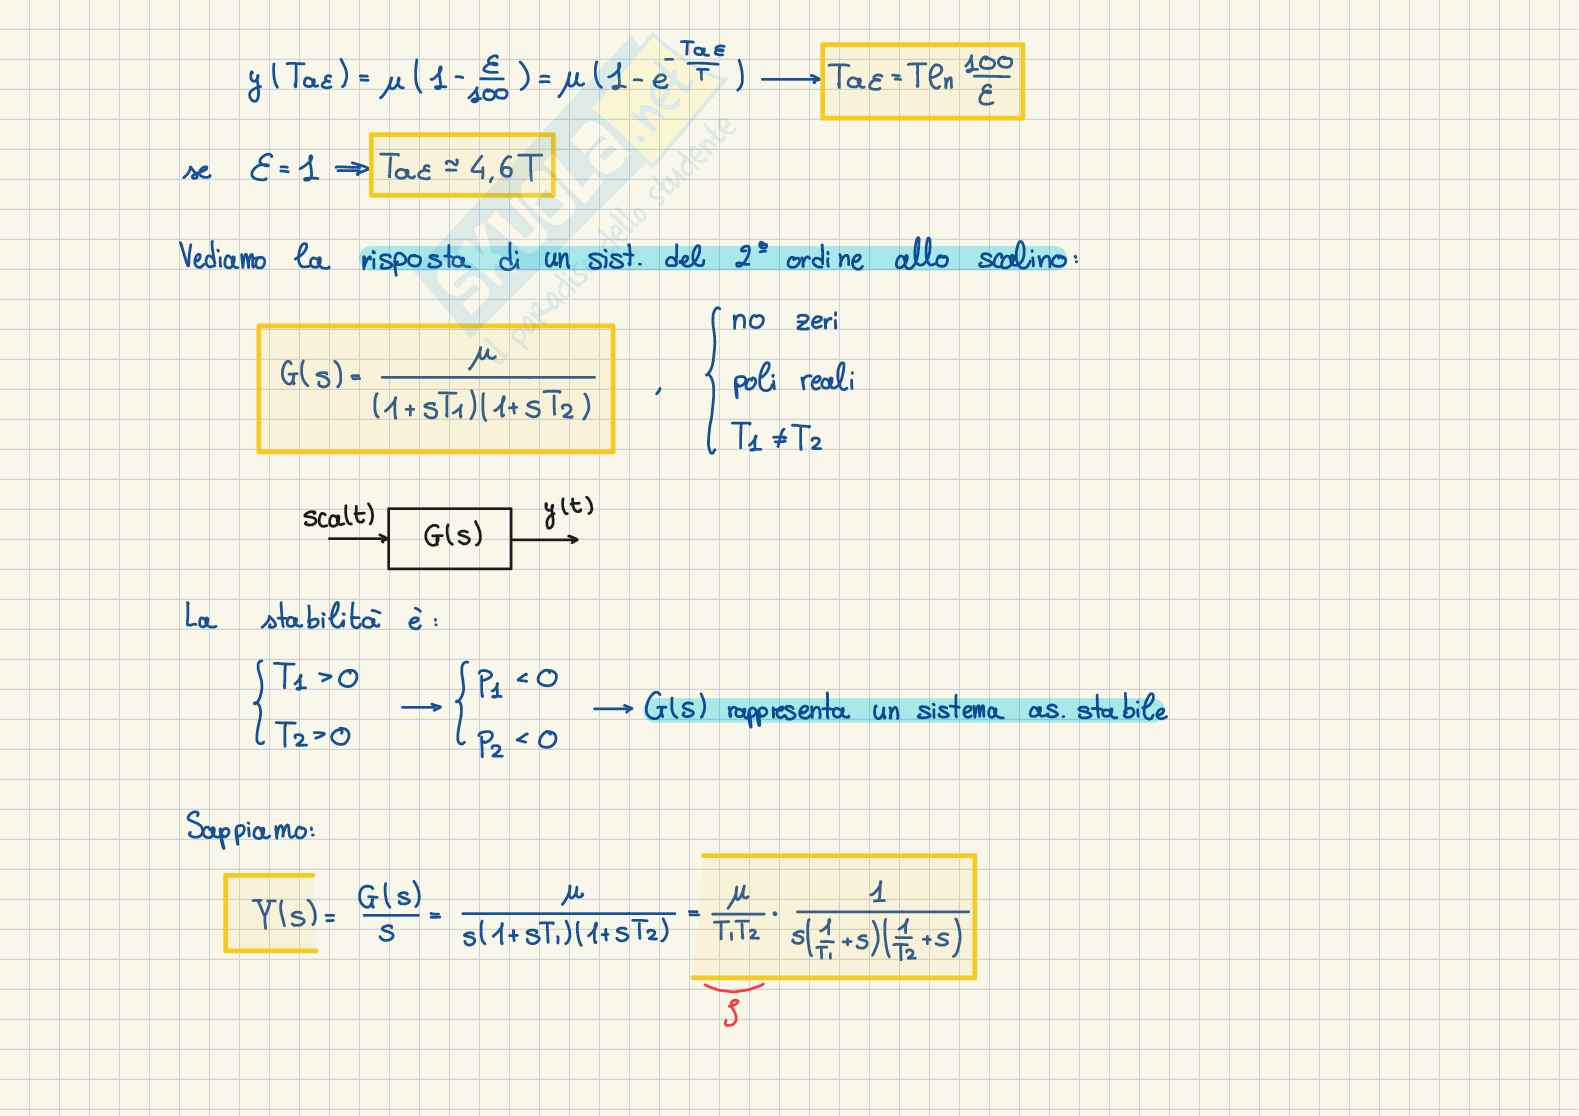 y(Taε) = μ(1 - ε/100) = μ(1 - e^(-Taε/T)) → Taε = T ln 100/ε
se ε = 1 ⇒ Taε ≃ 4,6 T
Vediamo la risposta di un sist. del 2° ordine allo scalino:
G(s) = μ/((1+sT₁)(1+sT₂)) , { no zeri
poli reali
T₁ ≠ T₂
sca(t) G(s) y(t)
La stabilità è:
{ T₁ > 0 → { p₁ < 0 → G(s) rappresenta un sistema as. stabile
T₂ > 0 p₂ < 0
Sappiamo:
Y(s) = G(s)/s = μ/(s(1+sT₁)(1+sT₂)) = μ/(T₁T₂) · 1/(s(1/T₁ + s)(1/T₂ + s))
ρ
SKUOLA.net
il paradiso dello studente